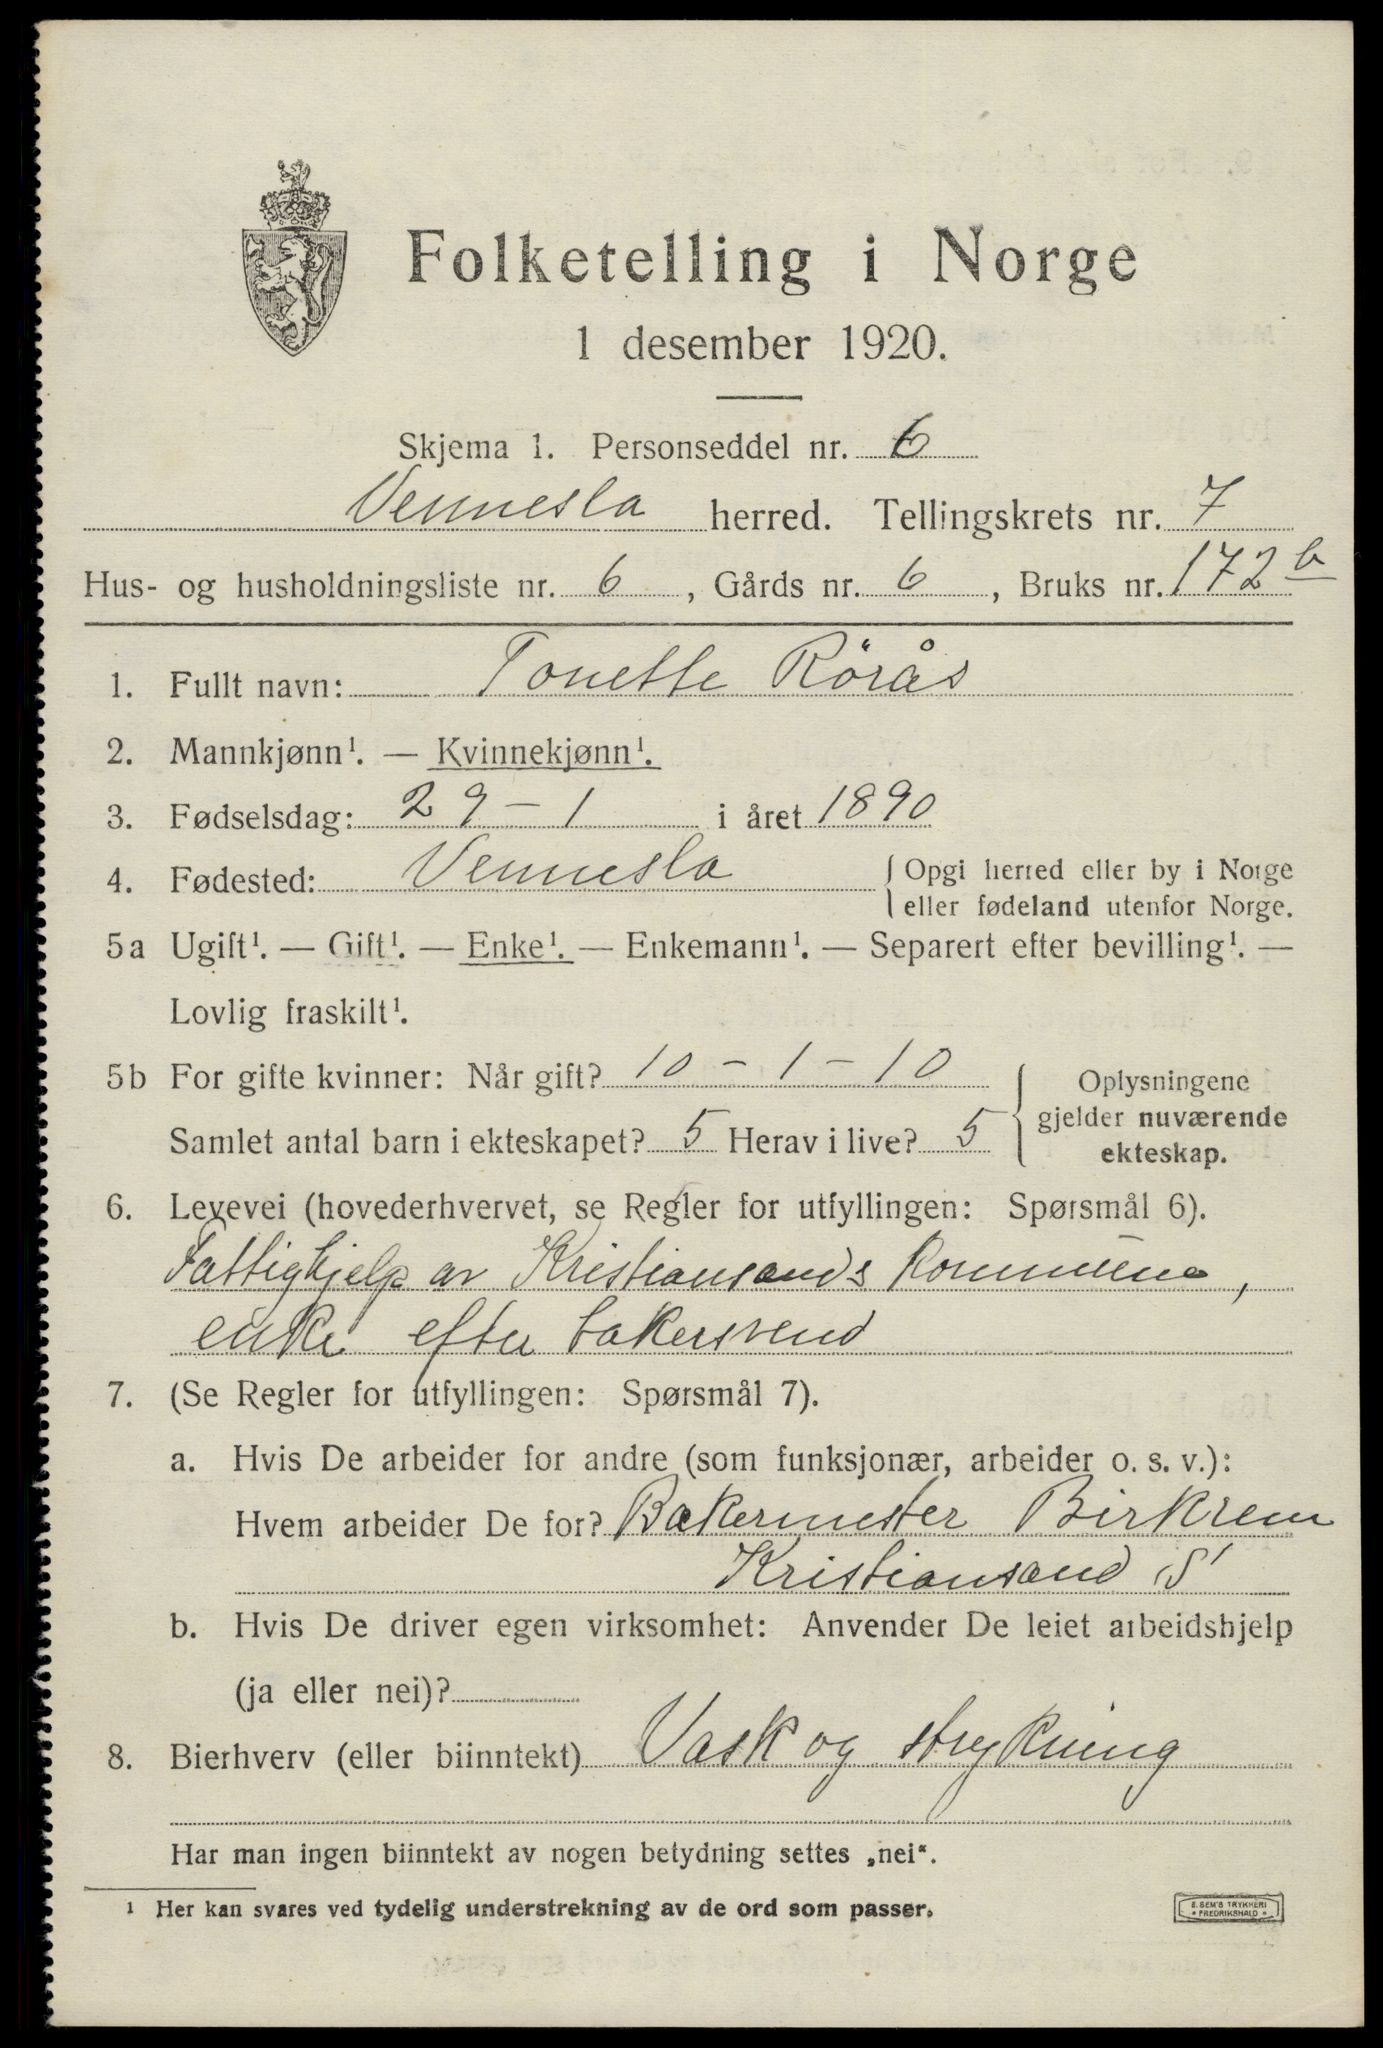 Folketelling i Norge
1 desember 1920.
Skjema 1. Personseddel nr. 6
Vennesla herred. Tellingskrets nr. 7
Hus- og husholdningsliste nr. 6, Gårds nr. 6, Bruks nr. 172 b
1. Fullt navn: Tonette Rörås
2. Mannkjønn¹. — Kvinnekjønn¹.
3. Fødselsdag: 29 – 1 i året 1890
4. Fødested: Vennesla { Opgi herred eller by i Norge
eller fødeland utenfor Norge.
5a Ugift¹. — Gift¹. — Enke¹. — Enkemann¹. — Separert efter bevilling¹. —
Lovlig fraskilt¹.
5b For gifte kvinner: Når gift? 10 – 1 – 10
Samlet antal barn i ekteskapet? 5 Herav i live? 5
Oplysningene
gjelder nuværende
ekteskap.
6. Levevei (hovederhvervet, se Regler for utfyllingen: Spørsmål 6).
Fattighjelp av Kristiansands kommune,
enke efter bakersvend
7. (Se Regler for utfyllingen: Spørsmål 7).
a. Hvis De arbeider for andre (som funksjonær, arbeider o. s. v.):
Hvem arbeider De for? Bakermester Birkrem
Kristiansand S
b. Hvis De driver egen virksomhet: Anvender De leiet arbeidshjelp
(ja eller nei)?
8. Bierhverv (eller biinntekt) Vask og strykning
Har man ingen biinntekt av nogen betydning settes „nei“.
¹ Her kan svares ved tydelig understrekning av de ord som passer.
E. SEM'S TRYKKERI
FREDRIKSHALD